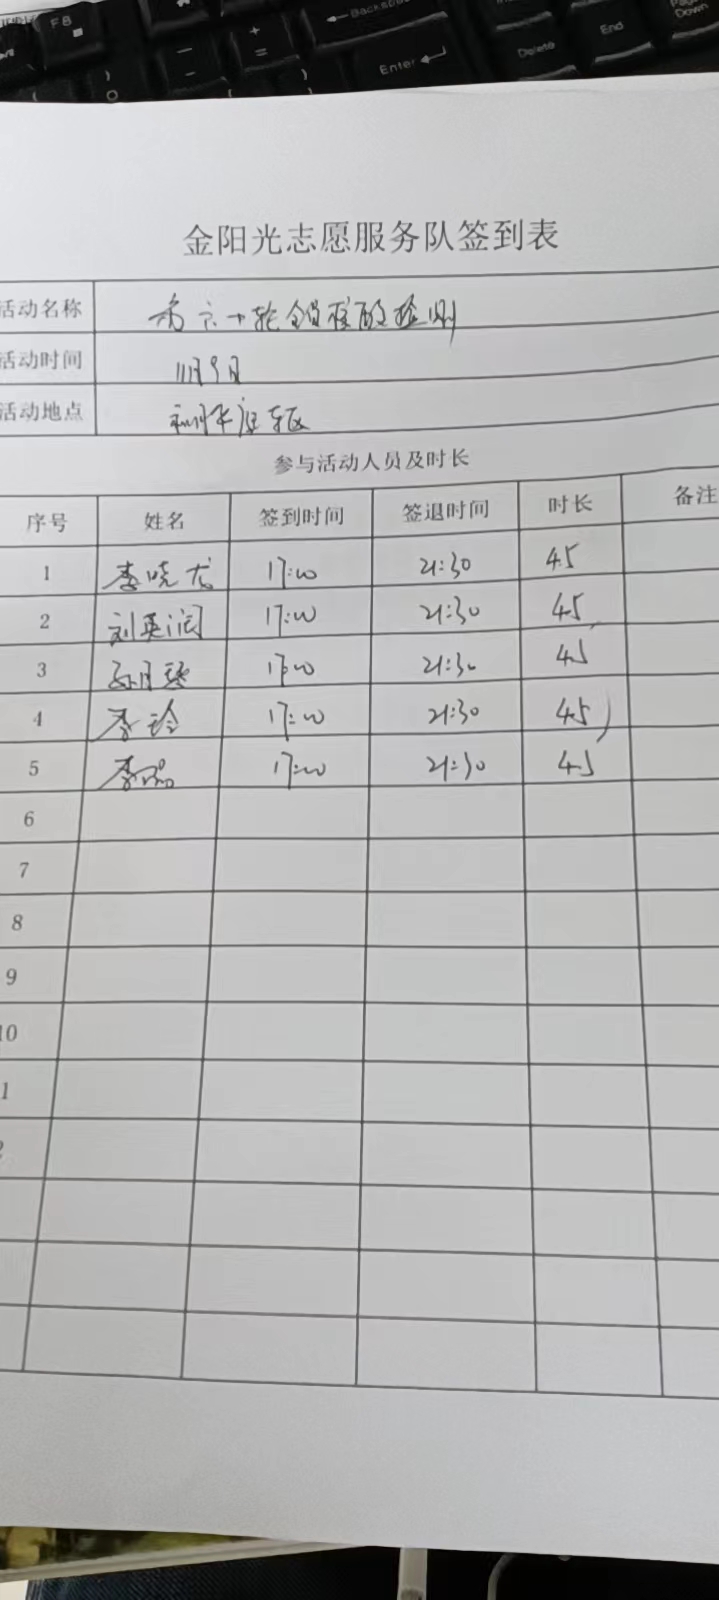 F8
Backspace
Enter
Delete
End
Page
Down
金阳光志愿服务队签到表
活动名称 六十轮全员核酸检测
活动时间 11月9日
活动地点
参与活动人员及时长
序号 姓名 签到时间 签退时间 时长 备注
1 李晓龙 17:00 21:30 4.5
2 刘英润 17:00 21:30 4.5
3 17:00 21:30 4.5
4 李玲 17:00 21:30 4.5
5 李 17:00 21:30 4.5
6
7
8
9
10
1
2